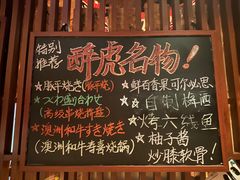 特别推荐
醉虎名物！
★豚平烧き(豚平烧)
★つくね盛り合わせ
(高级串烧拼盘)
★澳洲和牛すき烧き
(澳洲和牛寿喜烧锅)
★鲜百香果可尔必思
★自制梅酒
★烤六线鱼
★柚子酱
炒膝软骨！